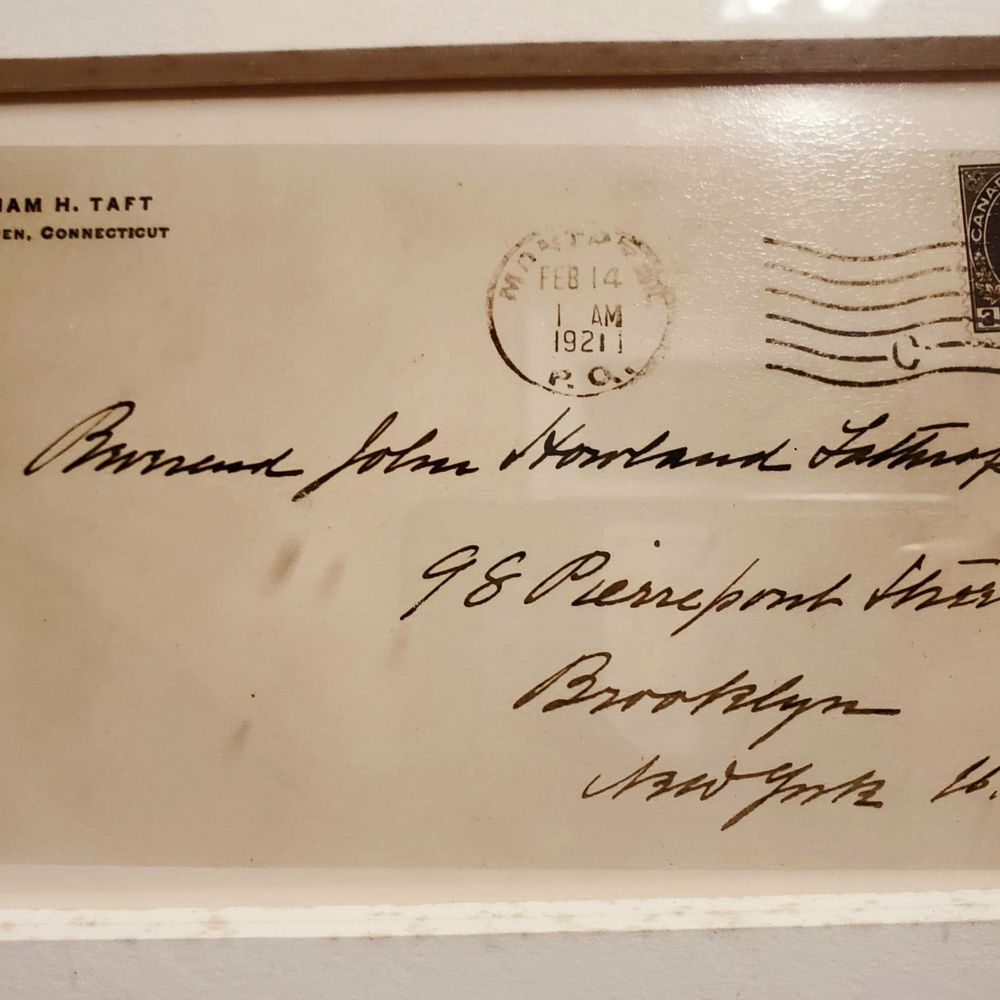 IAM H. TAFT
EN, CONNECTICUT
MONTREAL
FEB 14
1 AM
1921
P.Q.
CANA
3
C
Reverend John Howland Lathrop
98 Pierrepont Stree
Brooklyn
New York U.